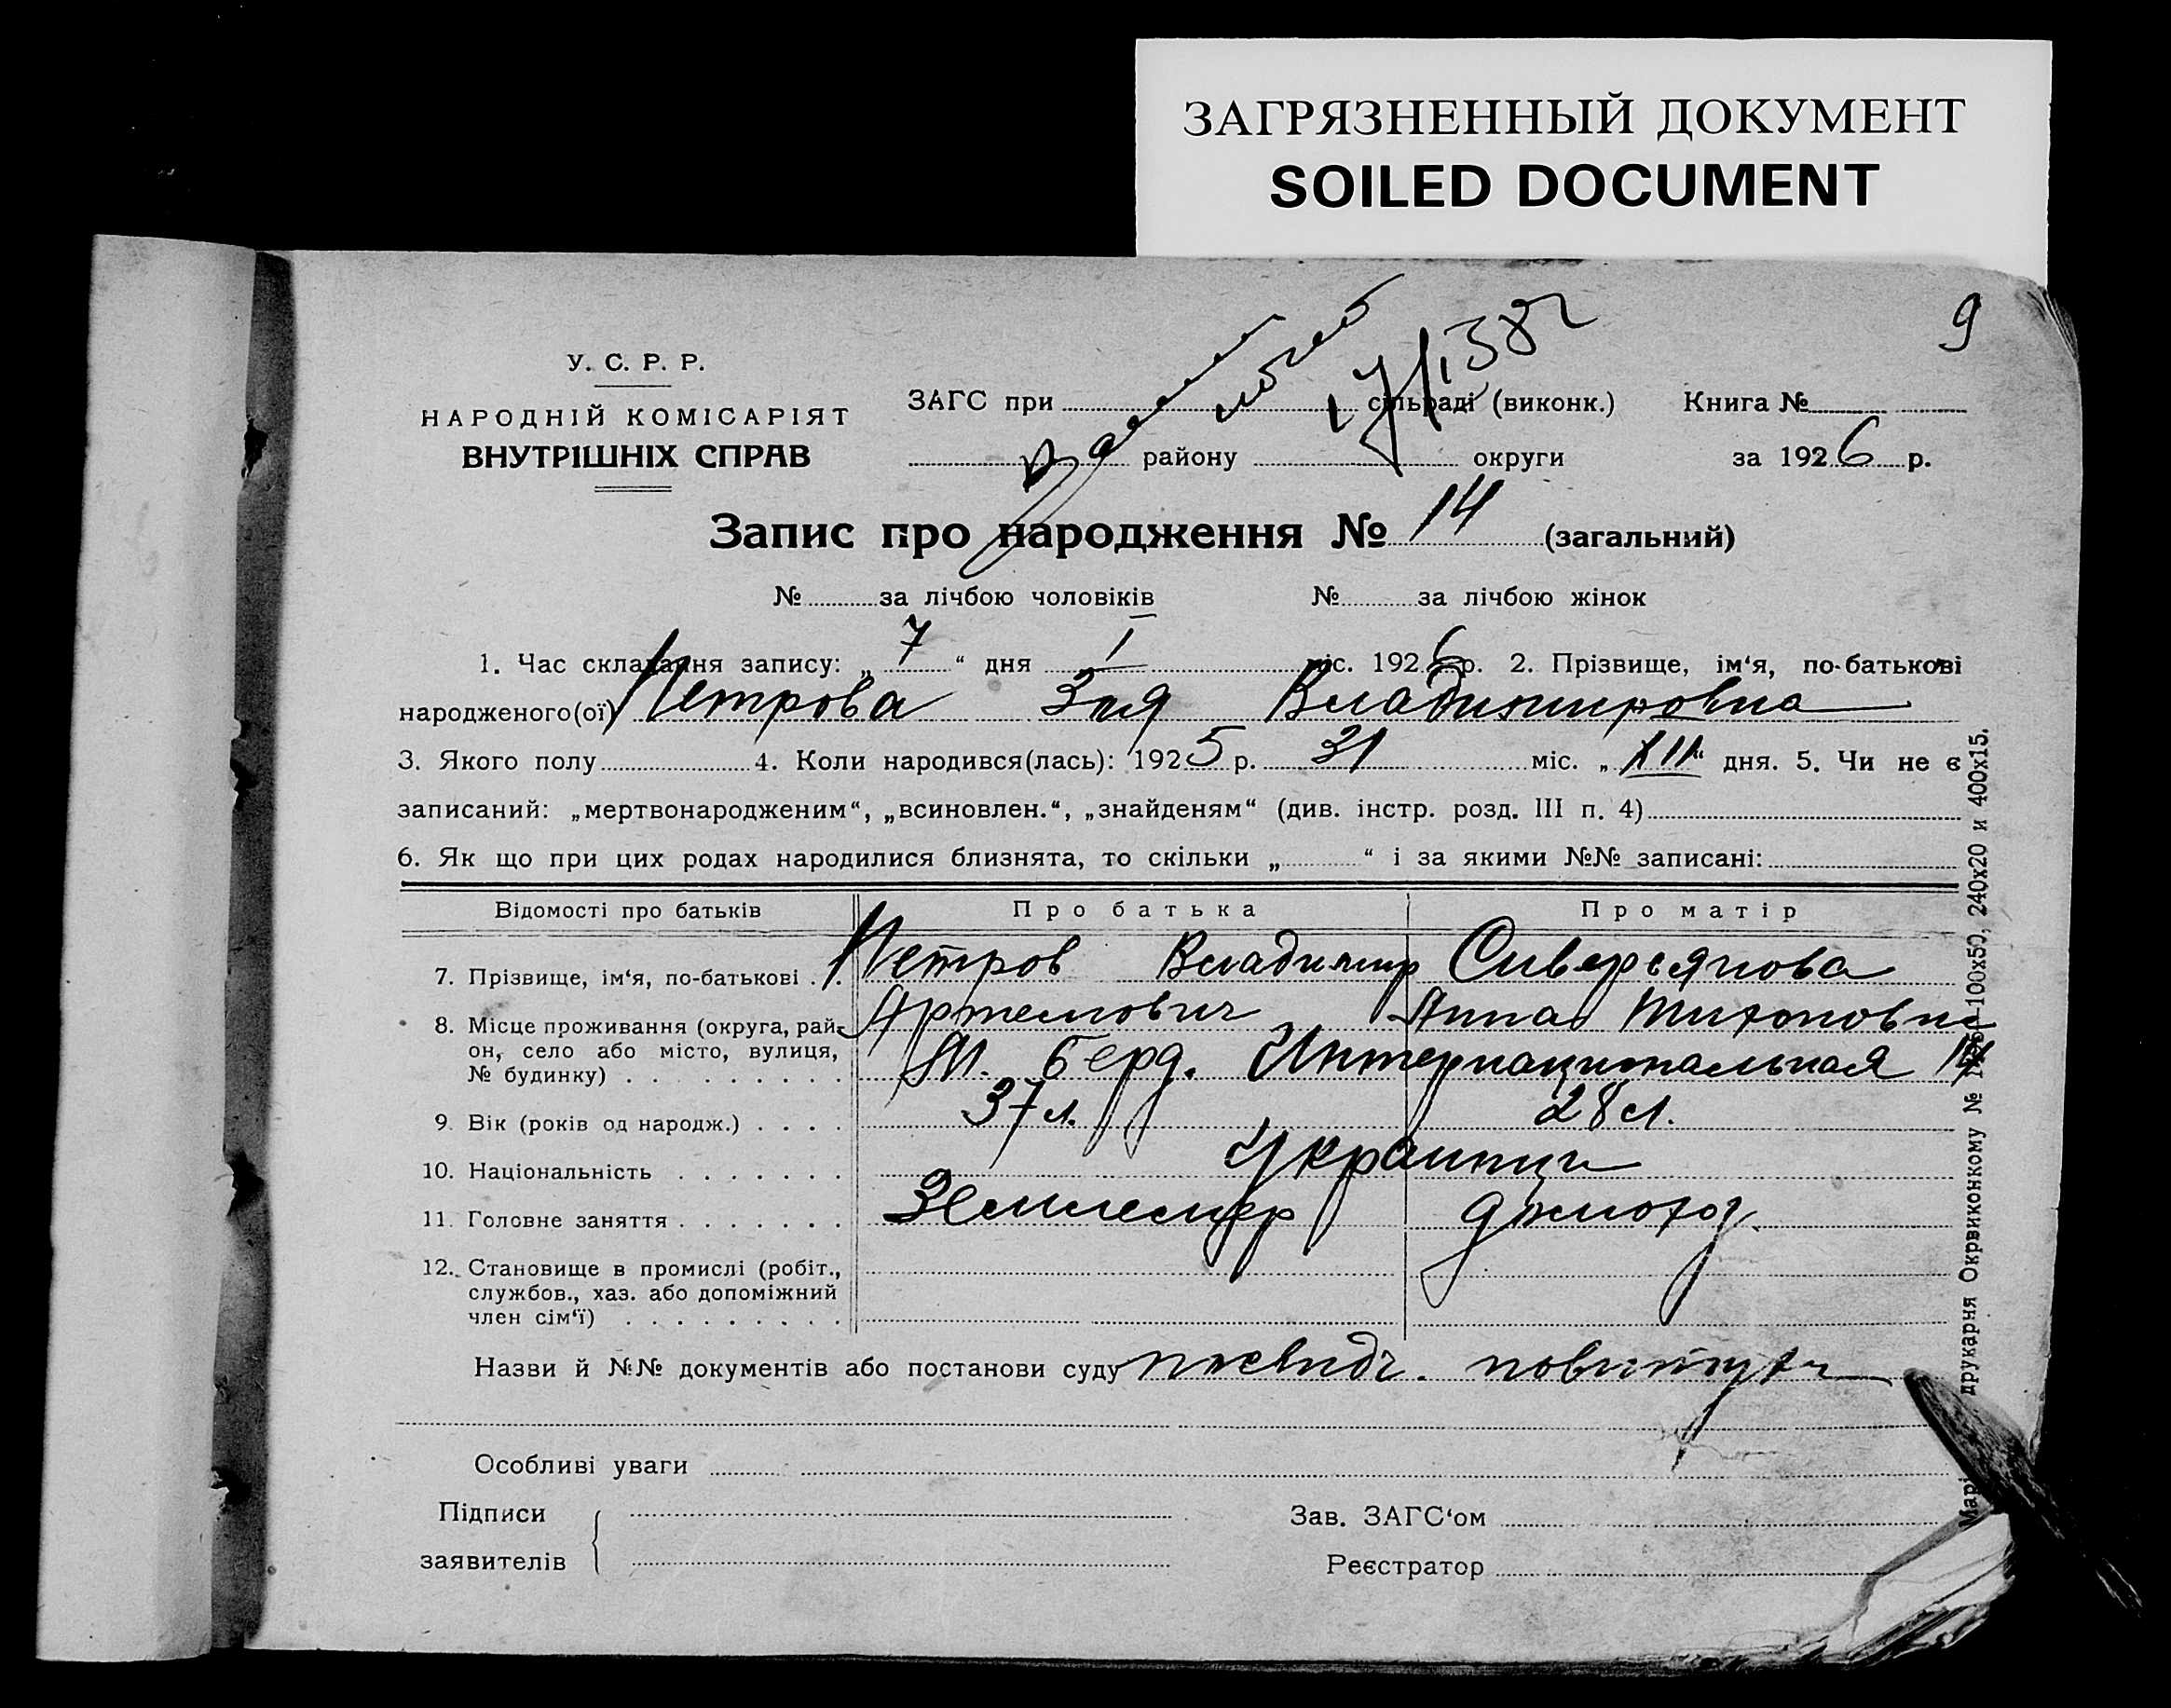 ЗАГРЯЗНЕННЫЙ ДОКУМЕНТ
SOILED DOCUMENT
9
У. С. Р. Р.
НАРОДНІЙ КОМІСАРІЯТ
ВНУТРІШНІХ СПРАВ
ЗАГС при сільраді (виконк.) Книга №
району округи за 1926 р.
17/1 38г
Запис про народження № 14 (загальний)
№ за лічбою чоловіків № за лічбою жінок
1. Час складання запису: „ 7 “ дня 1 міс. 1926 р. 2. Прізвище, ім‘я, по-батькові
народженого(ої) Петрова Зоя Владимировна
3. Якого полу 4. Коли народився(лась): 1925 р. 31 міс. „ XII “ дня. 5. Чи не є
записаний: „мертвонародженим“, „всиновлен.“, „знайденям“ (див. інстр. розд. III п. 4)
6. Як що при цих родах народилися близнята, то скільки „ “ і за якими №№ записані:
Відомості про батьків Про батька Про матір
7. Прізвище, ім‘я, по-батькові . . Петров Владимир Сиверьянова
Артемович Анна Тихоновна
8. Місце проживання (округа, рай-
он, село або місто, вулиця,
№ будинку) . . . . . . . . . М. Берд. Интернациональная 14
9. Вік (років од народж.) . . . . 37 л. 28 л.
10. Національність . . . . . . . Украинци
11. Головне заняття . . . . . . . Землемер домохоз.
12. Становище в промислі (робіт.,
службов., хаз. або допоміжний
член сім‘ї) . . . . . . . . .
Назви й №№ документів або постанови суду повитухи
Особливі уваги
Підписи
заявителів
Зав. ЗАГС‘ом
Реєстратор
друкарня Окрвиконкому № 100х50, 240х20 и 400х15.